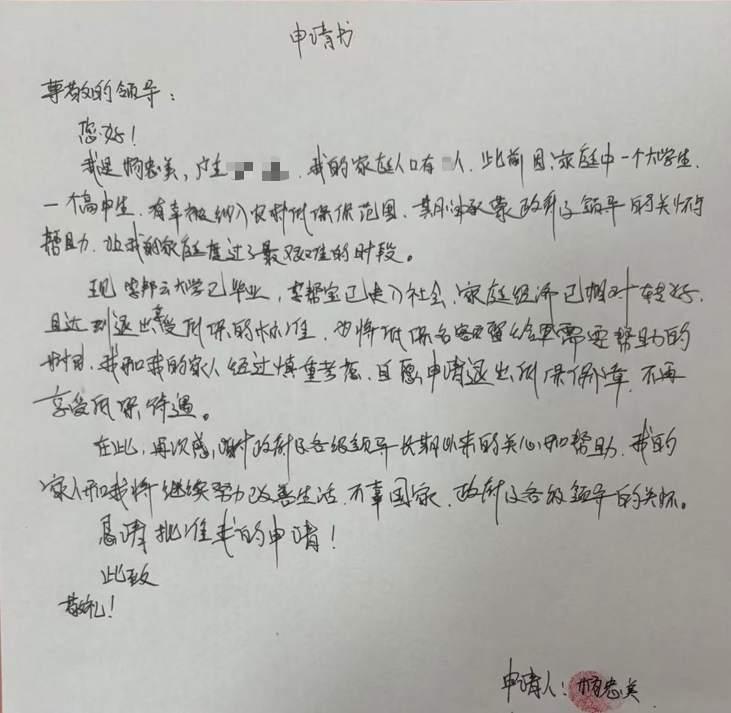 申请书
尊敬的领导：
您好！
我是杨忠美，户主，我的家庭人口有人，此前因家庭中一个大学生，
一个高中生，有幸被纳入农村低保保范围，期间承蒙政府及领导的关怀与
帮助，让我的家庭度过了最艰难的时段。
现李邦云大学已毕业，李帮宝已走入社会，家庭经济已相对转好，
且达到退出享受低保的标准，也将低保名额留给更需要帮助的
村民，我和我的家人经过慎重考虑，自愿申请退出低保保障，不再
享受低保待遇。
在此，再次感谢政府及各级领导长期以来的关心和帮助，我的
家人和我将继续努力改善生活，不辜国家、政府及各级领导的关怀。
恳请批准我的申请！
此致
敬礼！
申请人：杨忠美